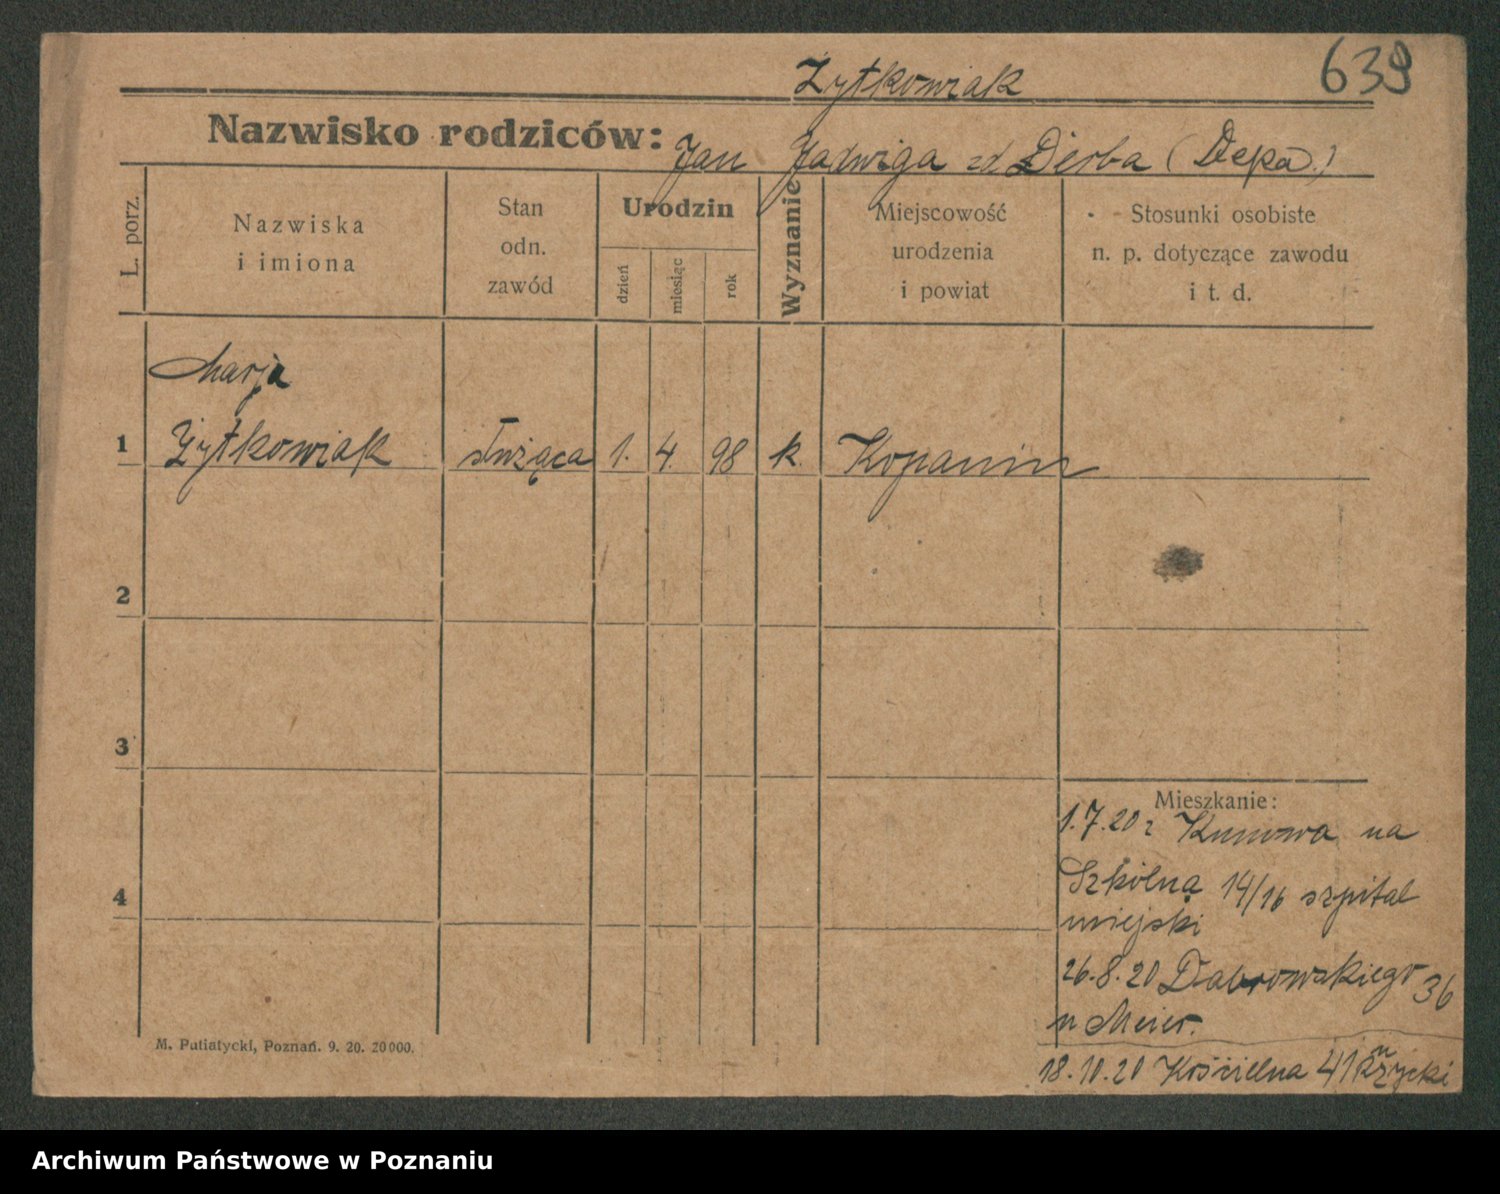 Żytkowiak
639
Nazwisko rodziców: Jan Jadwiga zd Derba (Depa.)
L. porz.
Nazwiska
i imiona
Stan
odn.
zawód
Urodzin
dzień
miesiąc
rok
Wyznanie
Miejscowość
urodzenia
i powiat
Stosunki osobiste
n. p. dotyczące zawodu
i t. d.
Marja
1 Żytkowiak służąca 1. 4. 98 k. Kopanin
2
3
4
Mieszkanie:
1.7.20 z Kunowa na
Szkólną 14/16 szpital
miejski
26.8.20 Dabrowskiego 36
u Meier.
18.10.20 Kościelna 41 u
M. Putiatycki, Poznań. 9. 20. 20000.
Archiwum Państwowe w Poznaniu